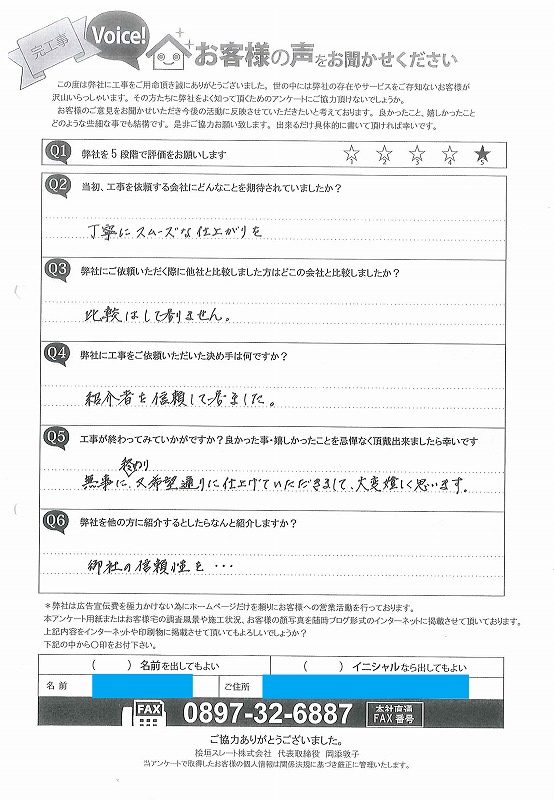 完工事
Voice!
お客様の声をお聞かせください
この度は弊社に工事をご用命頂き誠にありがとうございました。世の中には弊社の存在やサービスをご存知ないお客様が
沢山いらっしゃいます。その方たちに弊社をよく知って頂くためのアンケートにご協力頂けないでしょうか。
お客様のご意見をお聞かせいただき今後の活動に反映させていただきたいと考えております。良かったこと、嬉しかったこと
どのような些細な事でも結構です。是非ご協力お願い致します。出来るだけ具体的に書いて頂ければ幸いです。
Q1 弊社を5段階で評価をお願いします ☆1 ☆2 ☆3 ☆4 ★5
Q2 当初、工事を依頼する会社にどんなことを期待されていましたか?
丁寧にスムーズな仕上がりを
Q3 弊社にご依頼いただく際に他社と比較しました方はどこの会社と比較しましたか?
比較はして居りません。
Q4 弊社に工事をご依頼いただいた決め手は何ですか?
紹介者を信頼して居ました。
Q5 工事が終わってみていかがですか?良かった事・嬉しかったことを忌憚なく頂戴出来ましたら幸いです
終わり
無事に、又希望通りに仕上げていただきまして、大変嬉しく思います。
Q6 弊社を他の方に紹介するとしたらなんと紹介しますか?
御社の信頼性を・・・
*弊社は広告宣伝費を極力かけない為にホームページだけを頼りにお客様への営業活動を行っております。
本アンケート用紙またはお客様宅の調査風景や施工状況、お客様の顔写真を随時ブログ形式のインターネットに掲載させて頂いております。
上記内容をインターネットや印刷物に掲載させて頂いてもよろしいでしょうか?
下記の中から〇印をお付下さい。
( )名前を出してもよい ( )イニシャルなら出してもよい
名前 ご住所
FAX 0897-32-6887 本社直通 FAX番号
ご協力ありがとうございました。
桧垣スレート株式会社 代表取締役 岡添敦子
当アンケートで取得したお客様の個人情報は関係法規に基づき厳正に管理いたします。